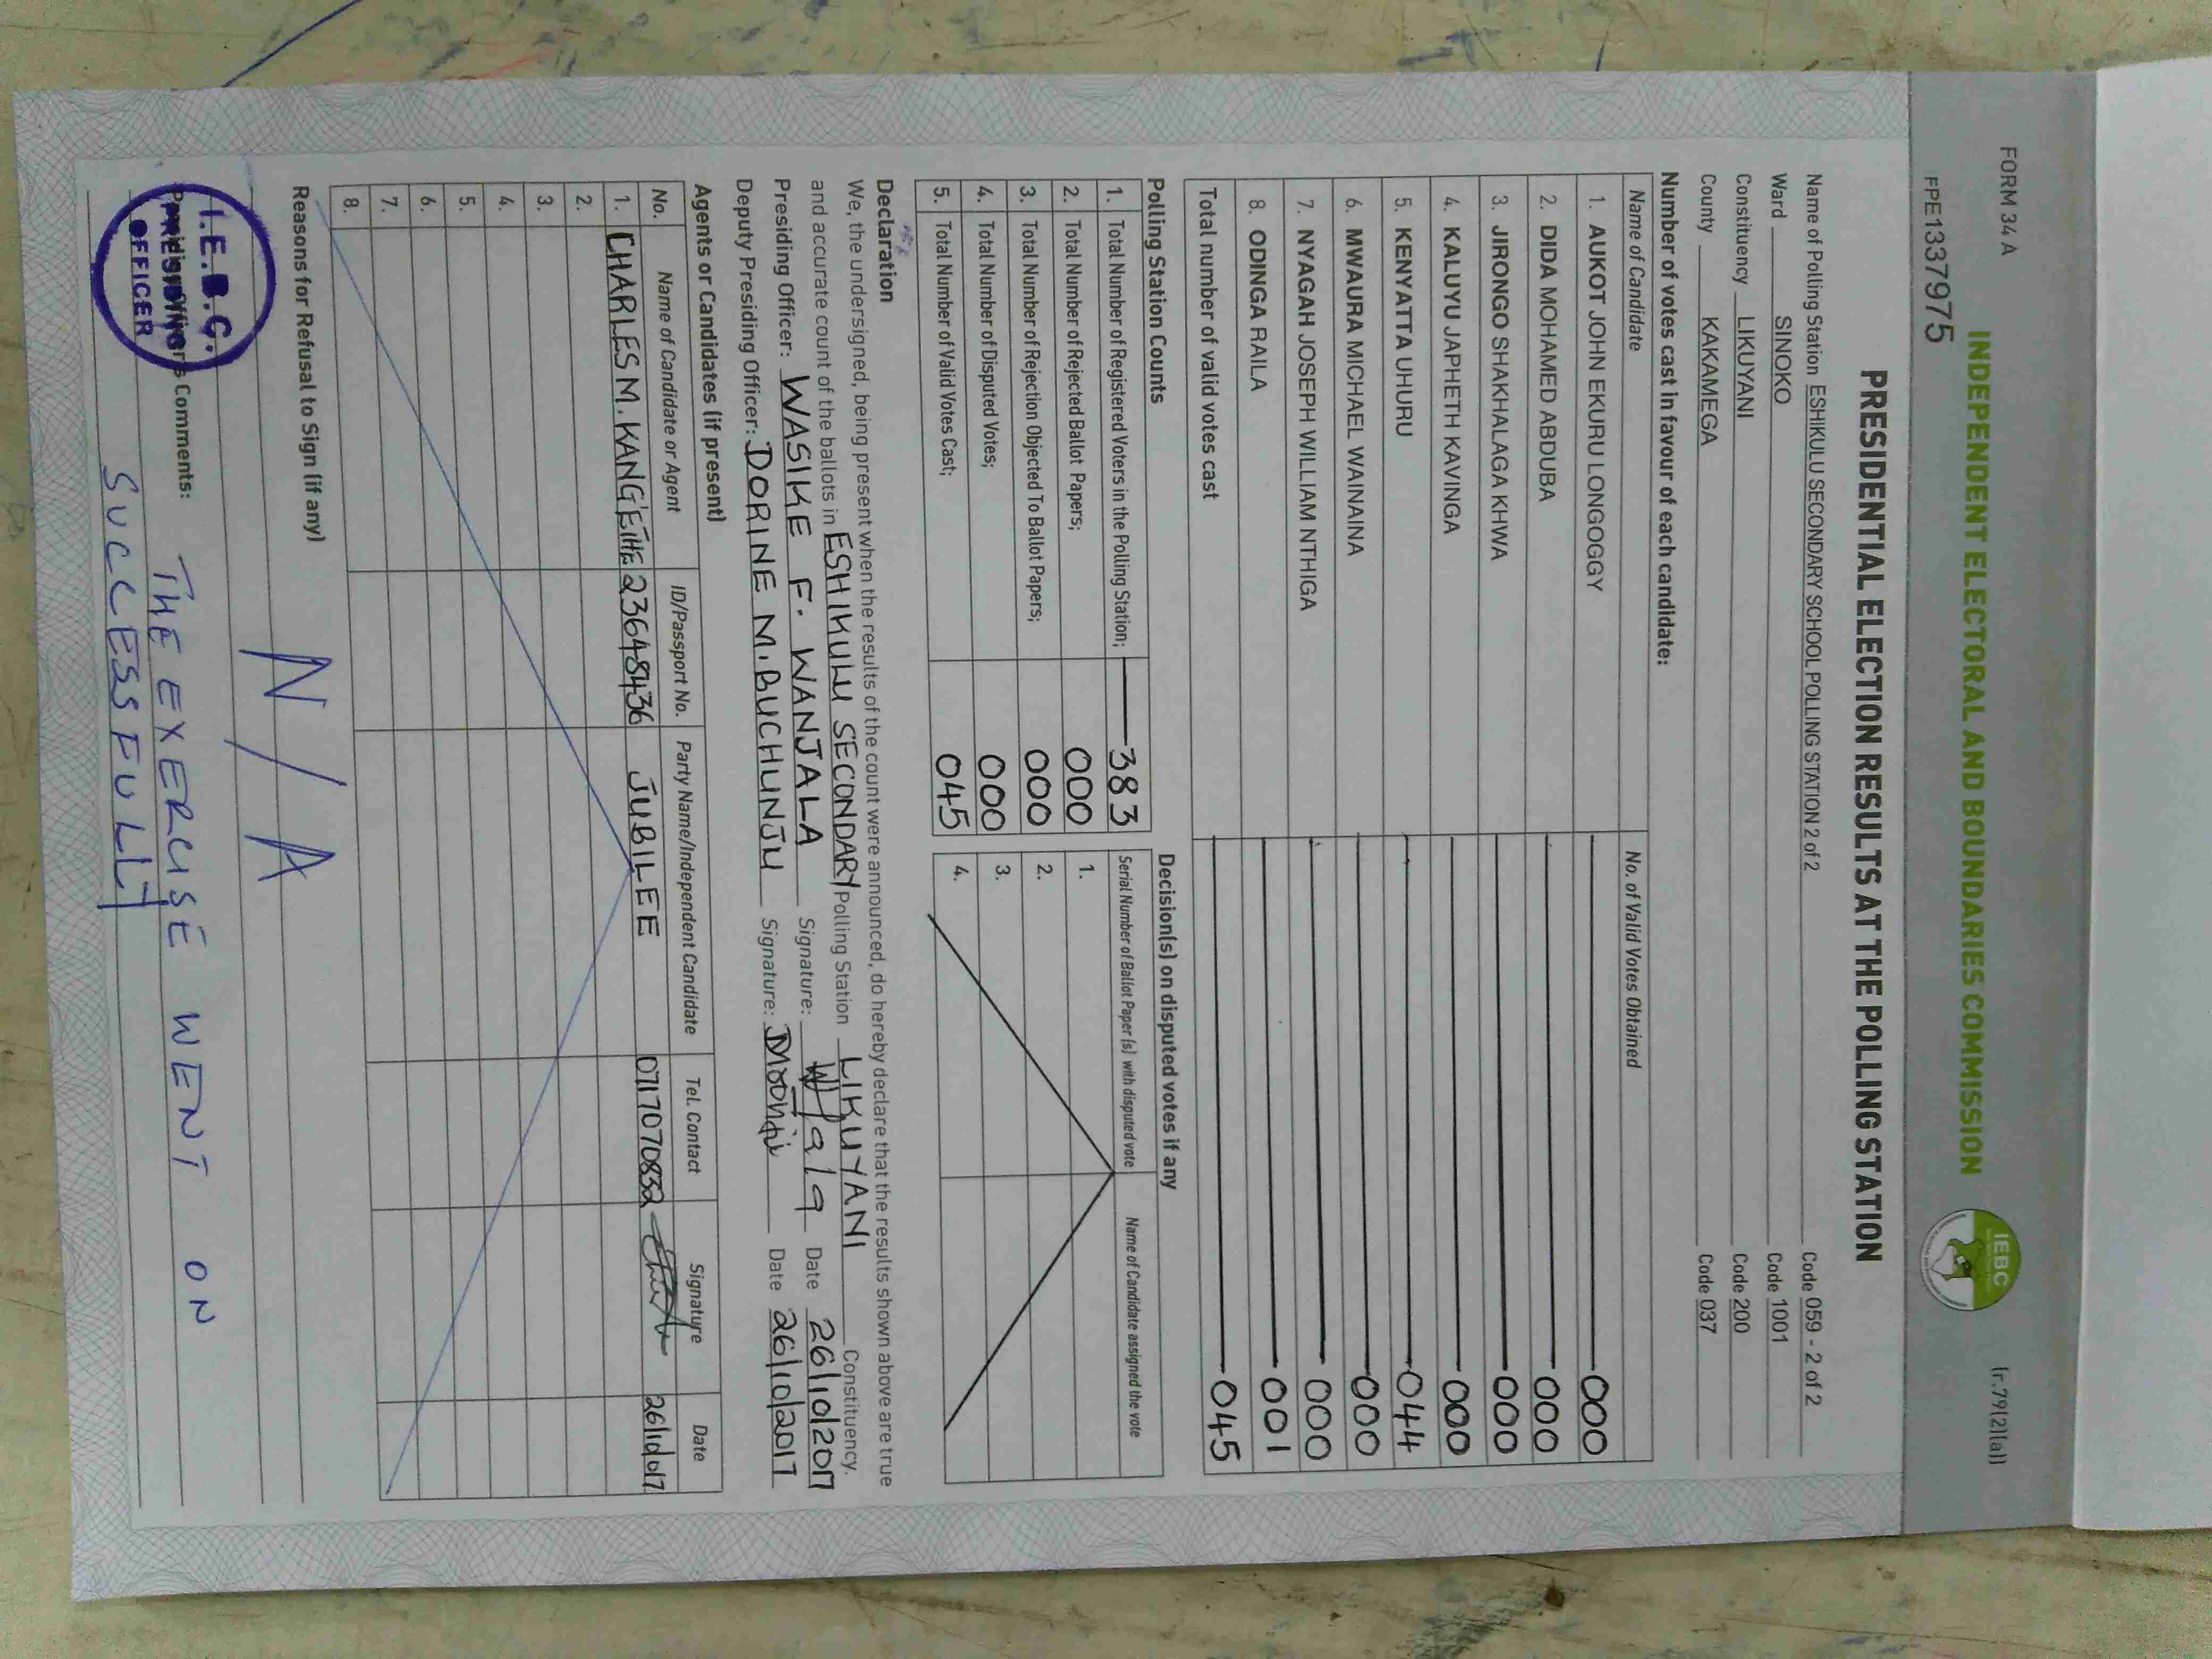 FORM 34 A
(r.79(2)(a))
INDEPENDENT ELECTORAL AND BOUNDARIES COMMISSION
IEBC
FPE1337975
PRESIDENTIAL ELECTION RESULTS AT THE POLLING STATION
Name of Polling Station ESHIKULU SECONDARY SCHOOL POLLING STATION 2 of 2 Code 059 - 2 of 2
Ward SINOKO Code 1001
Constituency LIKUYANI Code 200
County KAKAMEGA Code 037
Number of votes cast in favour of each candidate:
Name of Candidate No. of Valid Votes Obtained
1. AUKOT JOHN EKURU LONGOGGY 000
2. DIDA MOHAMED ABDUBA 000
3. JIRONGO SHAKHALAGA KHWA 000
4. KALUYU JAPHETH KAVINGA 000
5. KENYATTA UHURU 044
6. MWAURA MICHAEL WAINAINA 000
7. NYAGAH JOSEPH WILLIAM NTHIGA 000
8. ODINGA RAILA 001
Total number of valid votes cast 045
Polling Station Counts
1. Total Number of Registered Voters in the Polling Station; 383
2. Total Number of Rejected Ballot Papers; 000
3. Total Number of Rejection Objected To Ballot Papers; 000
4. Total Number of Disputed Votes; 000
5. Total Number of Valid Votes Cast; 045
Decision(s) on disputed votes if any
Serial Number of Ballot Paper (s) with disputed vote Name of Candidate assigned the vote
1.
2.
3.
4.
Declaration
We, the undersigned, being present when the results of the count were announced, do hereby declare that the results shown above are true
and accurate count of the ballots in ESHIKULU SECONDARY Polling Station LIKUYANI Constituency.
Presiding Officer: WASIKE F. WANJALA Signature: Date 26/10/2017
Deputy Presiding Officer: DORINE M. BUCHUNJU Signature: Date 26/10/2017
Agents or Candidates (if present)
No. Name of Candidate or Agent ID/Passport No. Party Name/Independent Candidate Tel. Contact Signature Date
1. CHARLES M. KANG'ETHE 23648436 JUBILEE 0717070832
2.
3.
4.
5.
6.
7.
8.
Reasons for Refusal to Sign (if any)
N/A
Presiding Officer's Comments: THE EXERCISE WENT ON
SUCCESSFULLY
I.E.B.C.
PRESIDING
OFFICER